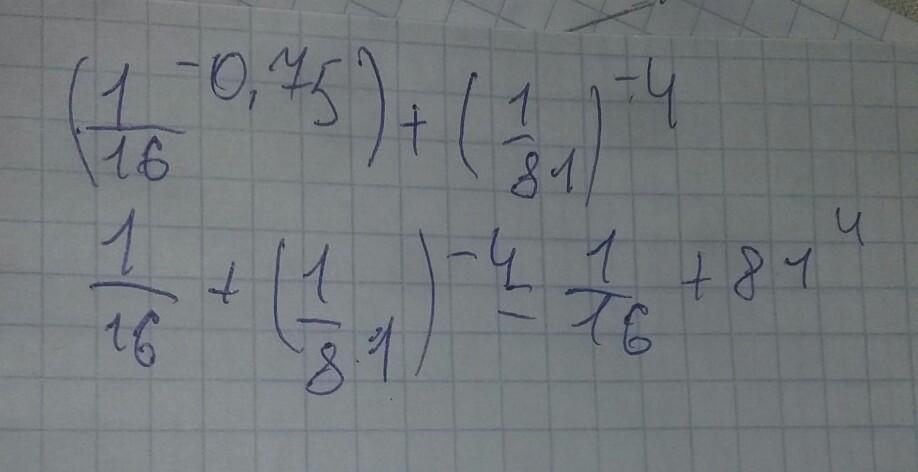 (1/16 ^-0,75) + (1/81)^-4
1/16 + (1/81)^-4 = 1/16 + 81^4